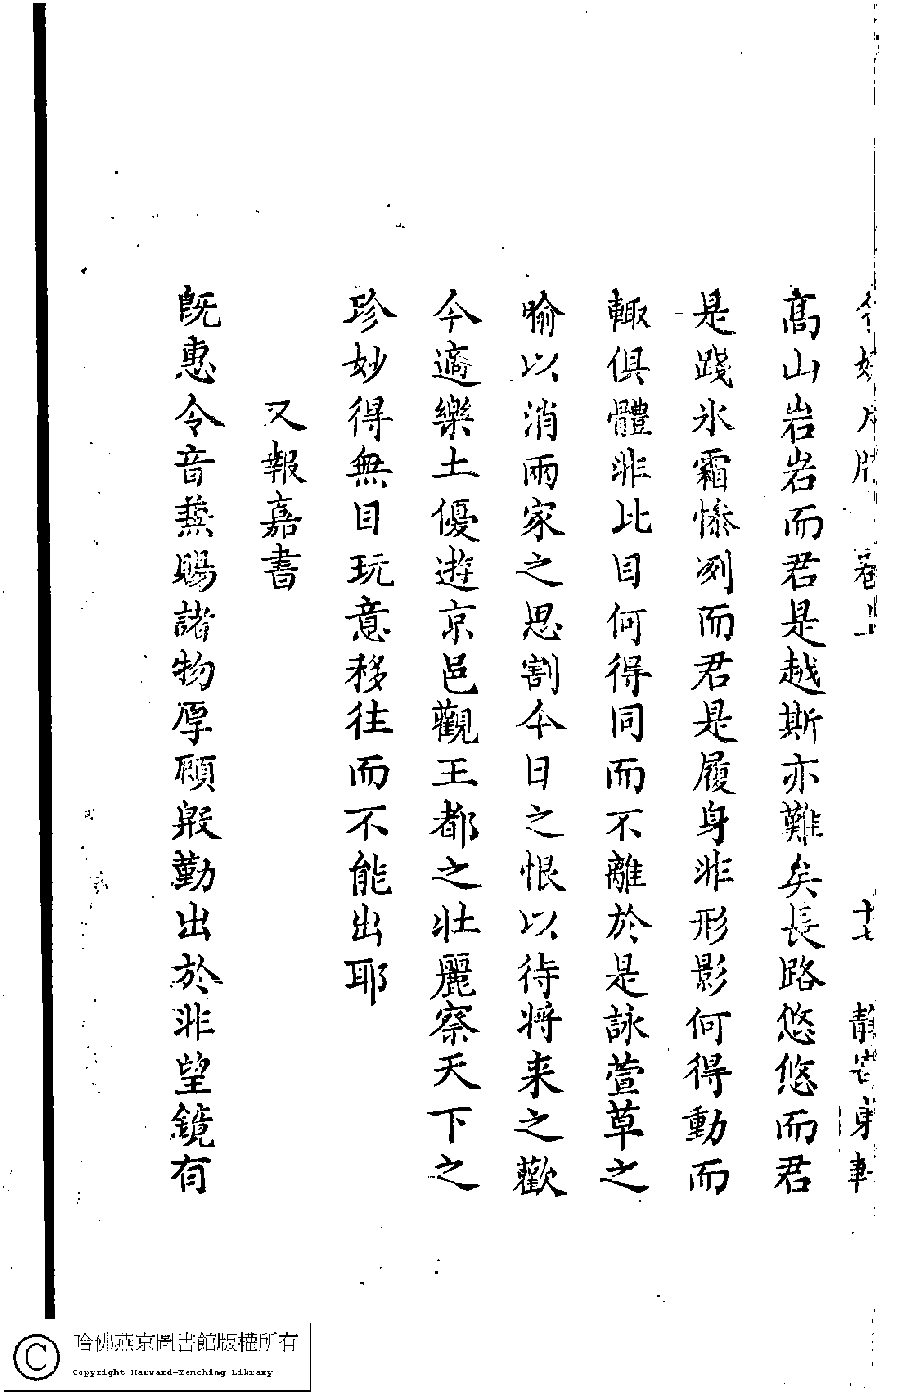 高山岩岩而君是越斯亦難矣長路悠悠而君
是踐氷霜慘冽而君是履身非形影何得動而
輙俱體非比目何得同而不離於是詠萱草之
喻以消兩家之思割今日之恨以待將来之歡
今適樂土優遊京邑觀王都之壯麗察天下之
珍妙得無目玩意移往而不能出耶
又報嘉書
旣惠令音兼賜諸物厚顧殷勤出於非望鏡有
哈佛燕京圖書館版權所有
Copyright Harvard-Yenching Library